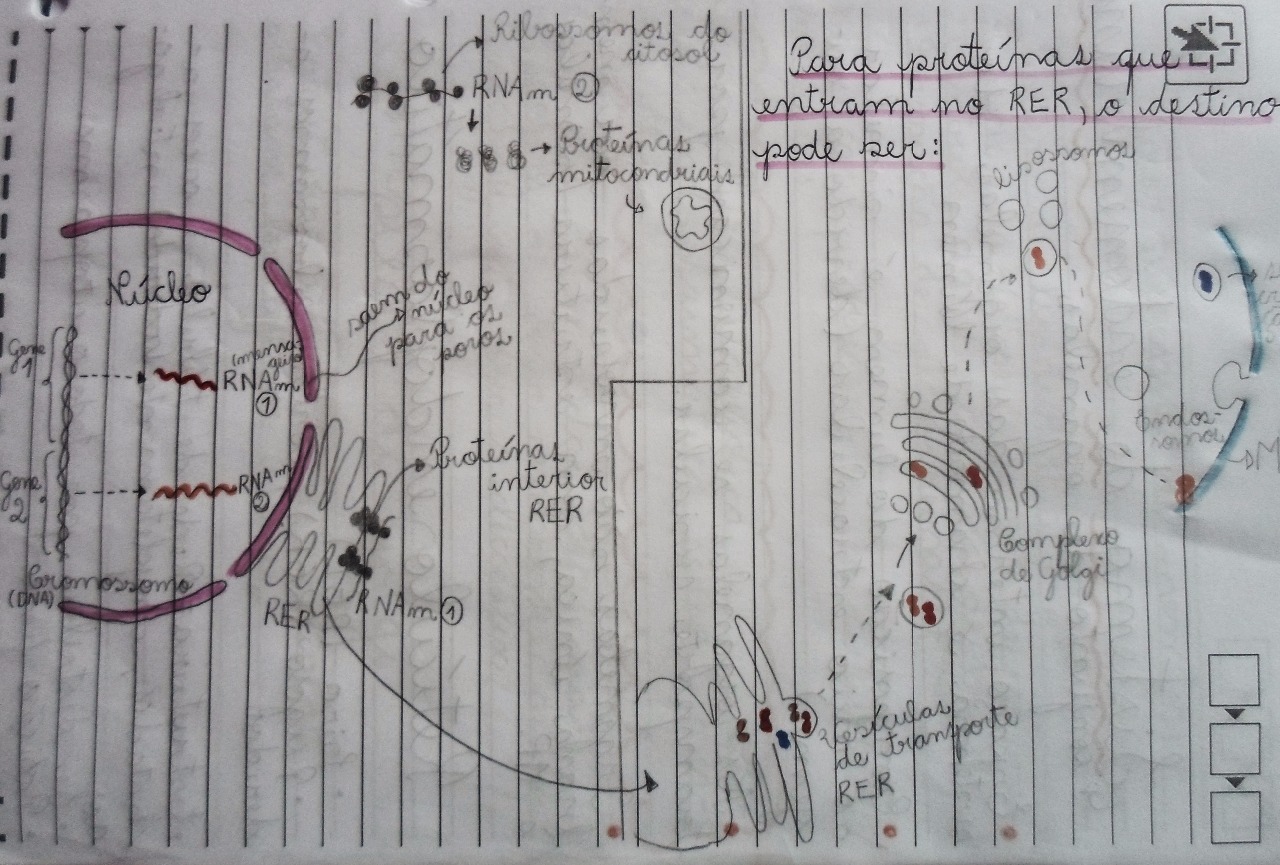 Ribossomos do
citosol
RNAm ②
Proteínas
mitocondriais
Para proteínas que
entram no RER, o destino
pode ser:
lipossomos
Núcleo
saem do
núcleo
para os
poros
Gene
1
(mensa-
geiro)
RNAm
①
Gene
2
RNAm
②
Cromossomo
(DNA)
Proteínas
interior
RER
RER
RNAm ①
Endos-
somos
M
Complexo
de Golgi
Vesículas
de transporte
RER